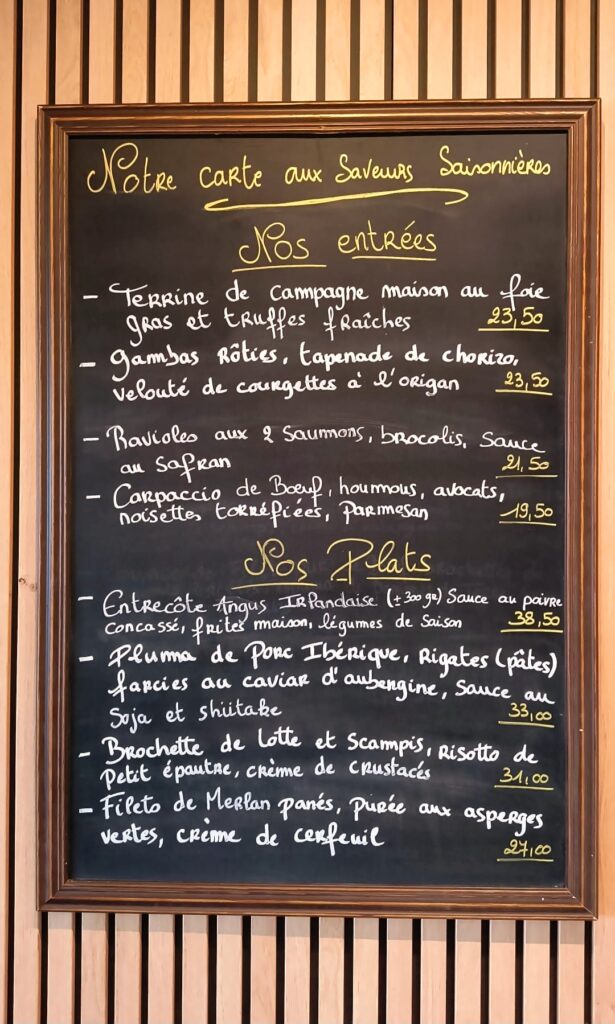 Notre carte aux Saveurs Saisonnières
Nos entrées
- Terrine de campagne maison au foie
gras et truffes fraîches 23,50
- Gambas Rôties, tapenade de chorizo,
velouté de courgettes à l'origan 23,50
- Ravioles aux 2 Saumons, brocolis, Sauce
au Safran 21,50
- Carpaccio de Boeuf, houmous, avocats,
noisettes torréfiées, Parmesan 19,50
Nos Plats
- Entrecôte Angus Irlandaise (±300gr) Sauce au poivre
concassé, frites maison, légumes de saison 38,50
- Pluma de Porc Ibérique, Rigates (pâtes)
farcies au caviar d'aubergine, Sauce au
Soja et shiitake 33,00
- Brochette de Lotte et Scampis, risotto de
Petit épautre, crème de crustacés 31,00
- Filets de Merlan panés, purée aux asperges
vertes, crème de cerfeuil 27,00